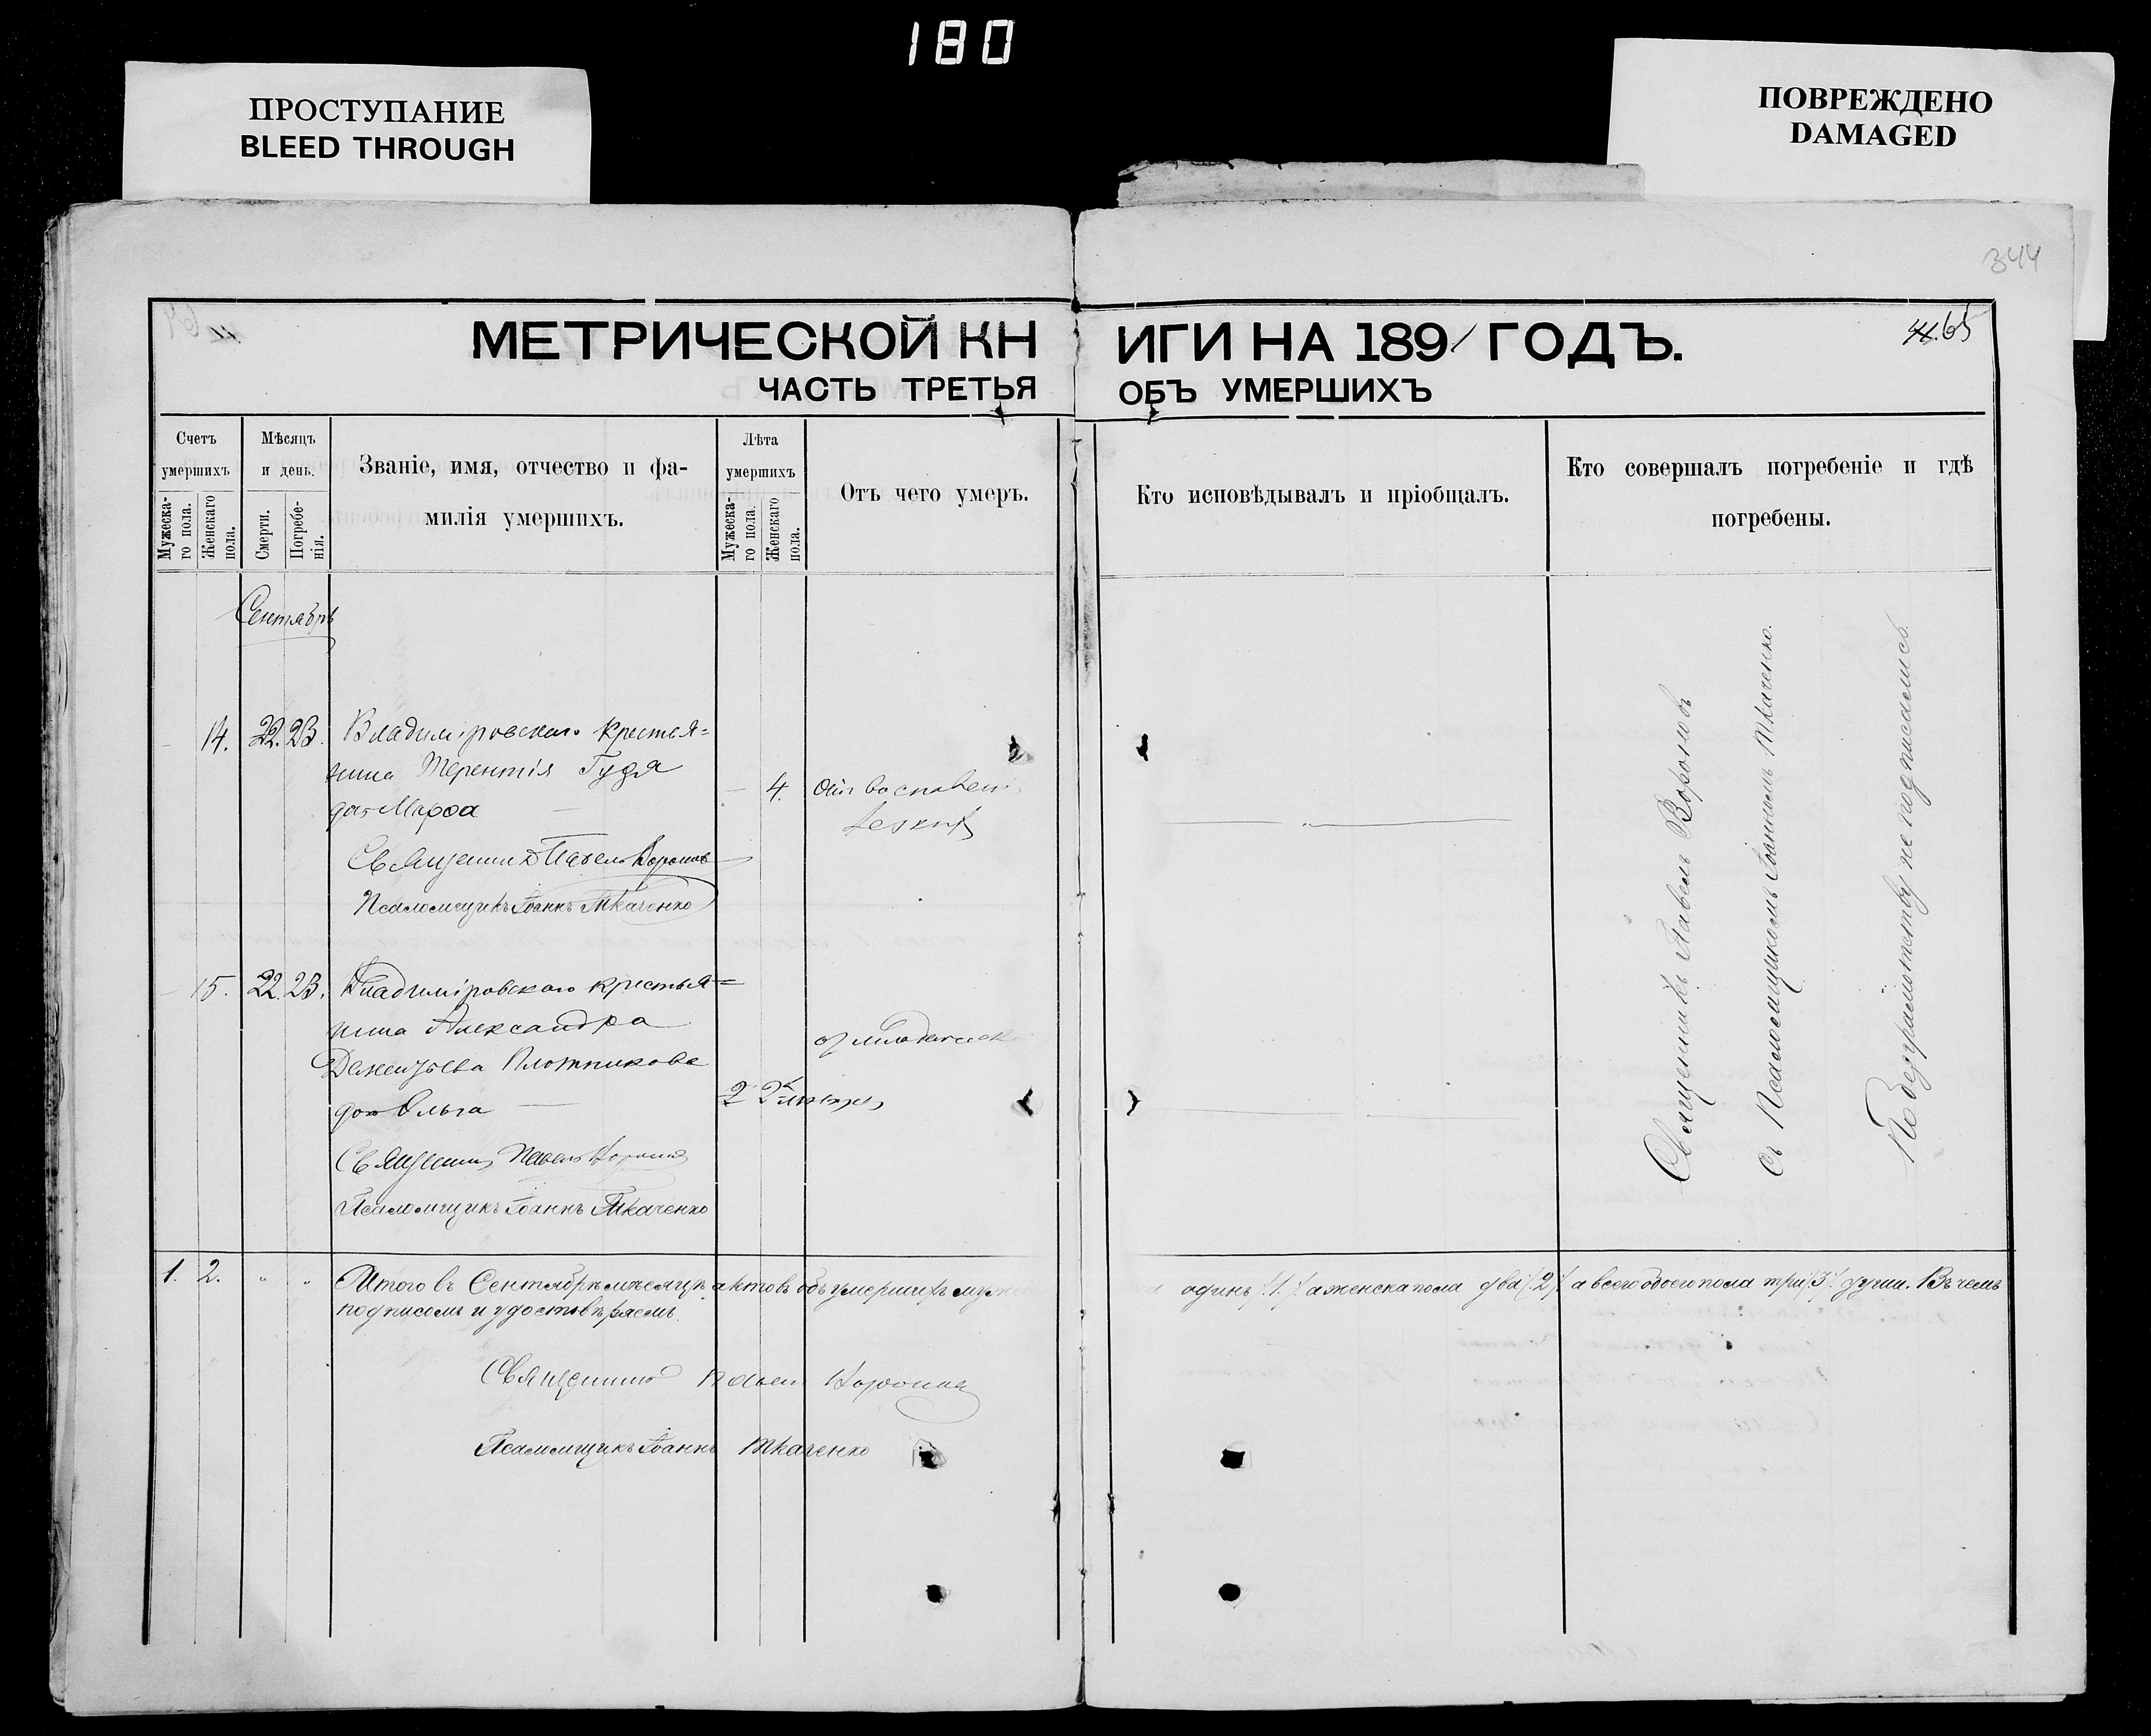 180
ПРОСТУПАНИЕ
BLEED THROUGH
ПОВРЕЖДЕНО
DAMAGED
344
65
МЕТРИЧЕСКОЙ КНИГИ НА 1891 ГОДЪ.
ЧАСТЬ ТРЕТЬЯ ОБЪ УМЕРШИХЪ
Счетъ умершихъ
Мужеска-
го пола.
Женскаго
пола.
Мѣсяцъ
и день.
Смерти.
Погребе-
нія.
Званіе, имя, отчество и фа-
милія умершихъ.
Лѣта
умершихъ
Мужеска-
го пола.
Женскаго
пола.
Отъ чего умеръ.
Кто исповѣдывалъ и пріобщалъ.
Кто совершалъ погребеніе и гдѣ
погребены.
Сентябрь
14. 22. 23. Владиміровскаго крестья=
нина Терентія Гудя
4. отъ воспален
дочь Марѳа
легкихъ
Священникъ Павелъ Вороновъ
Псаломщикъ Іоаннъ Ткаченко
15. 22. 23. Владиміровскаго крестья=
нина Александра
Плотникова
дочь Ольга
Священникъ Павелъ Вороновъ
Псаломщикъ Іоаннъ Ткаченко
Священникъ Павелъ Вороновъ
съ Псаломщикомъ Іоанномъ Ткаченко.
По безграмотству не подписались.
1. 2. " " Итого въ Сентябрѣ мѣсяцѣ актовъ объ умершихъ муж одинъ /1/ а женска пола два /2/ а всего обоего пола три /3/ души. Въ чемъ
подписомъ и удостовѣряемъ.
Священникъ Павелъ Вороновъ
Псаломщикъ Іоаннъ Ткаченко